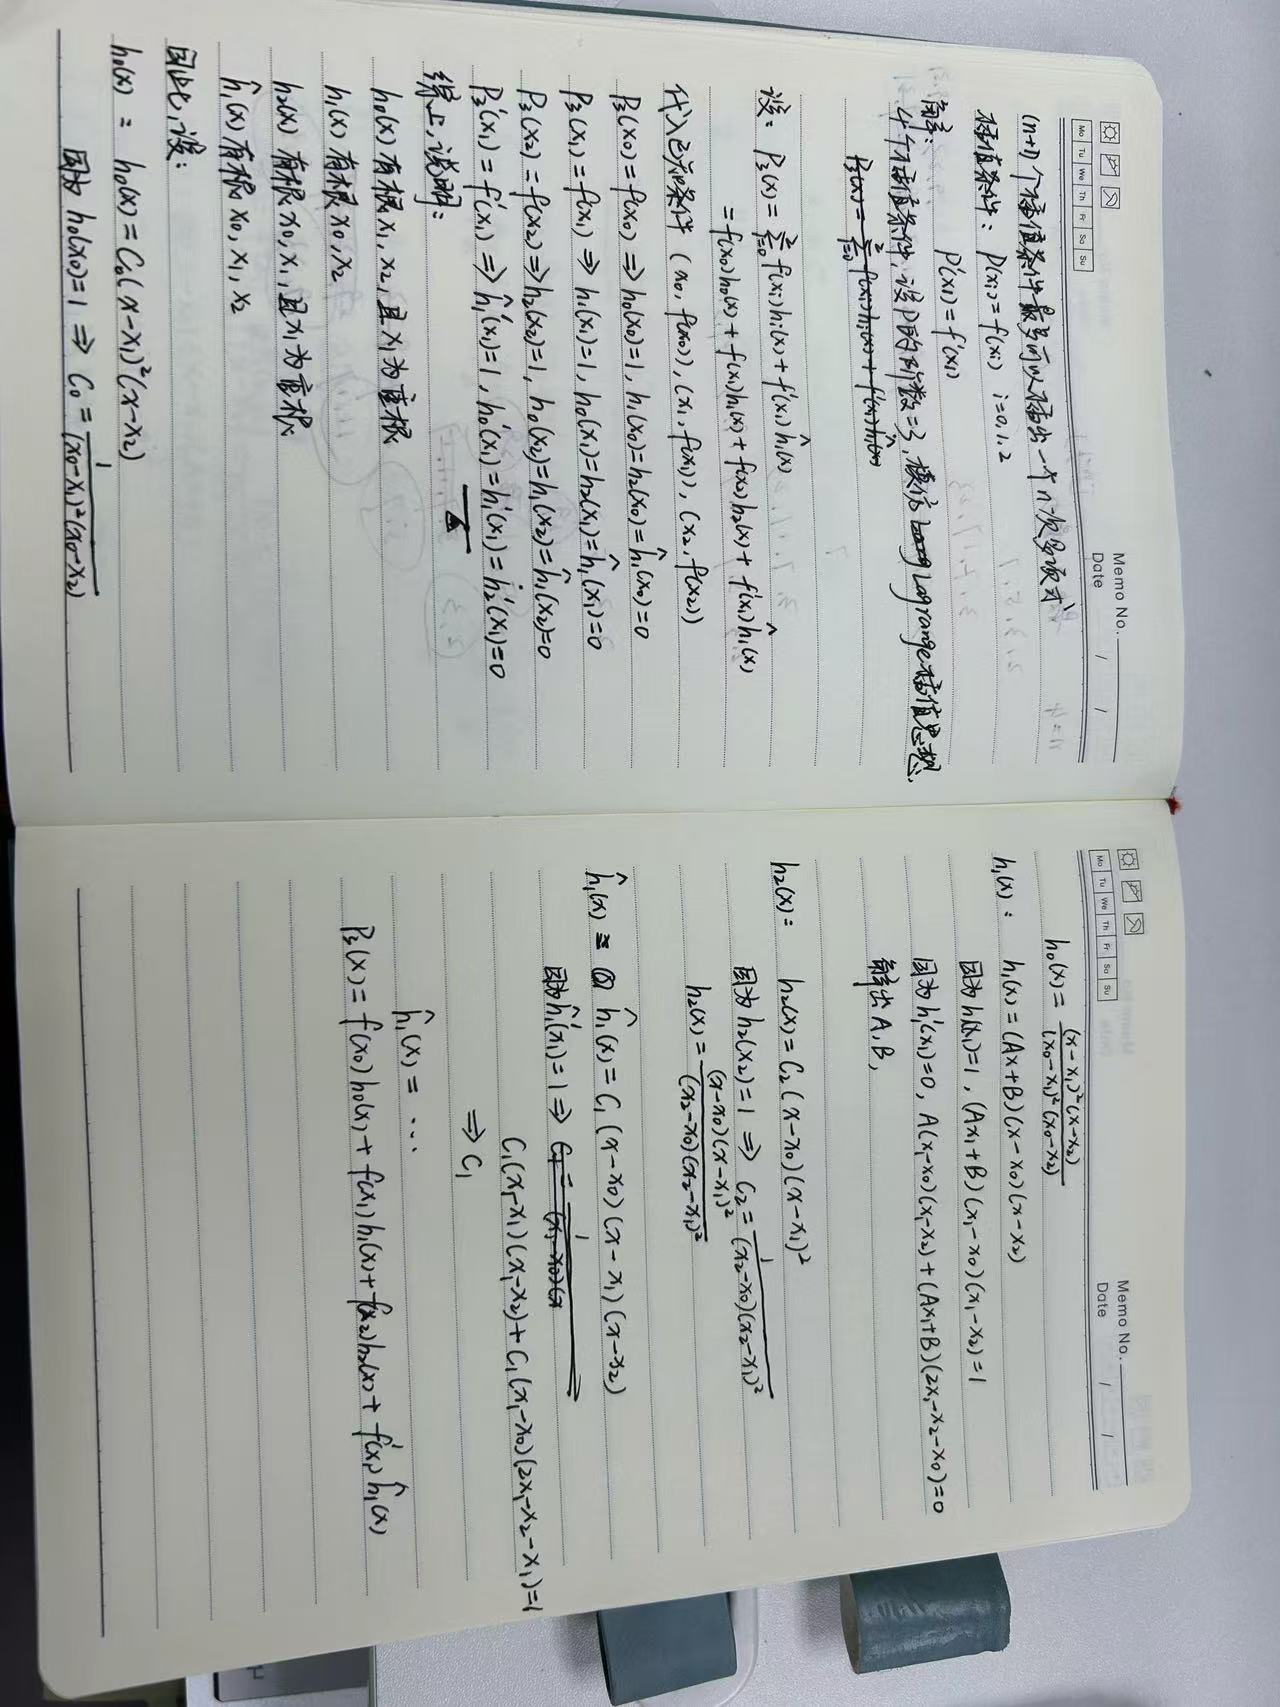 Memo No.
Date / /
Mo Tu We Th Fr Sa Su
(n+1)个插值条件最多可以插出一个n次多项式
插值条件: P(xi)=f(xi) i=0,1,2
P'(x1)=f'(x1)
解:
4个插值条件,设P的阶数=3,模仿Lagrange插值思想,
P3(x)=Σ(i=0→2) f(xi)hi(x)+f'(x1)ĥ1(x)
设: P3(x)=Σ(i=0→2) f(xi)hi(x)+f'(x1)ĥ1(x)
=f(x0)h0(x)+f(x1)h1(x)+f(x2)h2(x)+f'(x1)ĥ1(x)
代入已知条件 (x0,f(x0)),(x1,f(x1)),(x2,f(x2))
P3(x0)=f(x0)⇒h0(x0)=1,h1(x0)=h2(x0)=ĥ1(x0)=0
P3(x1)=f(x1)⇒h1(x1)=1,h0(x1)=h2(x1)=ĥ1(x1)=0
P3(x2)=f(x2)⇒h2(x2)=1,h0(x2)=h1(x2)=ĥ1(x2)=0
P3'(x1)=f'(x1)⇒ĥ1'(x1)=1,h0'(x1)=h1'(x1)=h2'(x1)=0
综上,说明:
h0(x)有根x1,x2,且x1为重根
h1(x)有根x0,x2
h2(x)有根x0,x1,且x1为重根
ĥ1(x)有根x0,x1,x2
因此,设:
h0(x): h0(x)=C0(x-x1)²(x-x2)
因为h0(x0)=1⇒C0=1/((x0-x1)²(x0-x2))
Memo No.
Date / /
Mo Tu We Th Fr Sa Su
h0(x)=((x-x1)²(x-x2))/((x0-x1)²(x0-x2))
h1(x): h1(x)=(Ax+B)(x-x0)(x-x2)
因为h1(x1)=1,(Ax1+B)(x1-x0)(x1-x2)=1
因为h1'(x1)=0,A(x1-x0)(x1-x2)+(Ax1+B)(2x1-x2-x0)=0
解出A,B,
h2(x): h2(x)=C2(x-x0)(x-x1)²
因为h2(x2)=1⇒C2=1/((x2-x0)(x2-x1)²)
h2(x)=((x-x0)(x-x1)²)/((x2-x0)(x2-x1)²)
ĥ1(x): ĥ1(x)=C1(x-x0)(x-x1)(x-x2)
因为ĥ1'(x1)=1⇒
C1(x1-x1)(x1-x2)+C1(x1-x0)(2x1-x2-x1)=1
⇒C1
ĥ1(x)=···
P3(x)=f(x0)h0(x)+f(x1)h1(x)+f(x2)h2(x)+f'(x1)ĥ1(x)